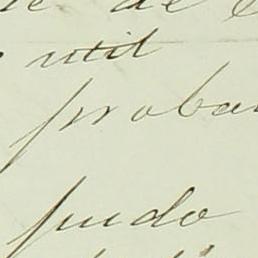 de
util
proba
pudo